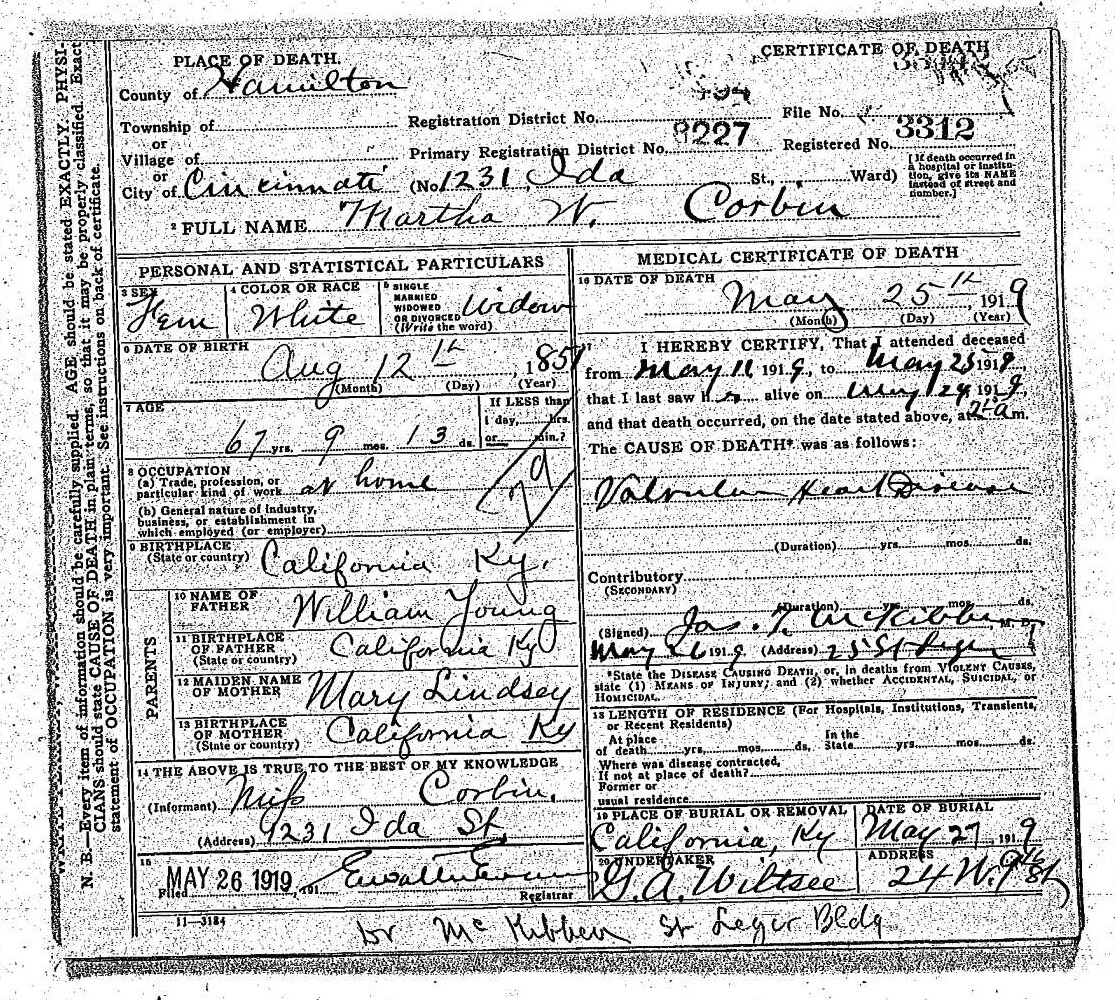 PLACE OF DEATH.
CERTIFICATE OF DEATH
County of Hamilton
Township of
Registration District No.
File No.
or
Village of
Primary Registration District No. 8227
Registered No. 3312
or
City of Cincinnati (No. 1231 Ida St., Ward)
[If death occurred in a hospital or institution, give its NAME instead of street and number.]
2 FULL NAME Martha W. Corbin
PERSONAL AND STATISTICAL PARTICULARS
3 SEX Fem
4 COLOR OR RACE White
5 SINGLE MARRIED WIDOWED OR DIVORCED (Write the word) Widow
6 DATE OF BIRTH
Aug 12th, 1851
(Month) (Day) (Year)
7 AGE
67 yrs. 9 mos. 13 ds.
If LESS than
1 day, hrs.
or min.?
8 OCCUPATION
(a) Trade, profession, or
particular kind of work at home
(b) General nature of industry,
business, or establishment in
which employed (or employer)
9 BIRTHPLACE
(State or country) California Ky.
PARENTS
10 NAME OF
FATHER William Young
11 BIRTHPLACE
OF FATHER
(State or country) California Ky
12 MAIDEN NAME
OF MOTHER Mary Lindsey
13 BIRTHPLACE
OF MOTHER
(State or country) California Ky
14 THE ABOVE IS TRUE TO THE BEST OF MY KNOWLEDGE
(Informant) Miss Corbin.
(Address) 1231 Ida St,
15
Filed MAY 26 1919, 191
Registrar
11—3184
MEDICAL CERTIFICATE OF DEATH
16 DATE OF DEATH
May 25th 1919
(Month) (Day) (Year)
I HEREBY CERTIFY, That I attended deceased
from May 11, 1919, to May 25 1919,
that I last saw h alive on May 24, 1919,
and that death occurred, on the date stated above, at 2 a m.
The CAUSE OF DEATH* was as follows:
Valvular Heart Disease
(Duration) yrs. mos. ds.
Contributory
(SECONDARY)
(Duration) yrs. mos. ds.
(Signed) Jas. T. McKibben M.D.
May 26 1919 (Address) 25 St Leger
*State the DISEASE CAUSING DEATH, or, in deaths from VIOLENT CAUSES,
state (1) MEANS OF INJURY; and (2) whether ACCIDENTAL, SUICIDAL, or
HOMICIDAL.
18 LENGTH OF RESIDENCE (For Hospitals, Institutions, Transients,
or Recent Residents)
At place In the
of death yrs. mos. ds. State yrs. mos. ds.
Where was disease contracted,
If not at place of death?
Former or
usual residence
19 PLACE OF BURIAL OR REMOVAL
California, Ky
DATE OF BURIAL
May 27, 1919
20 UNDERTAKER
G. A. Wiltsee
ADDRESS
24 W. 9th St
Dr McKibben St Leger Bldg
N. B.—Every item of information should be carefully supplied. AGE should be stated EXACTLY. PHYSI-
CIANS should state CAUSE OF DEATH in plain terms, so that it may be properly classified. Exact
statement of OCCUPATION is very important. See instructions on back of certificate.